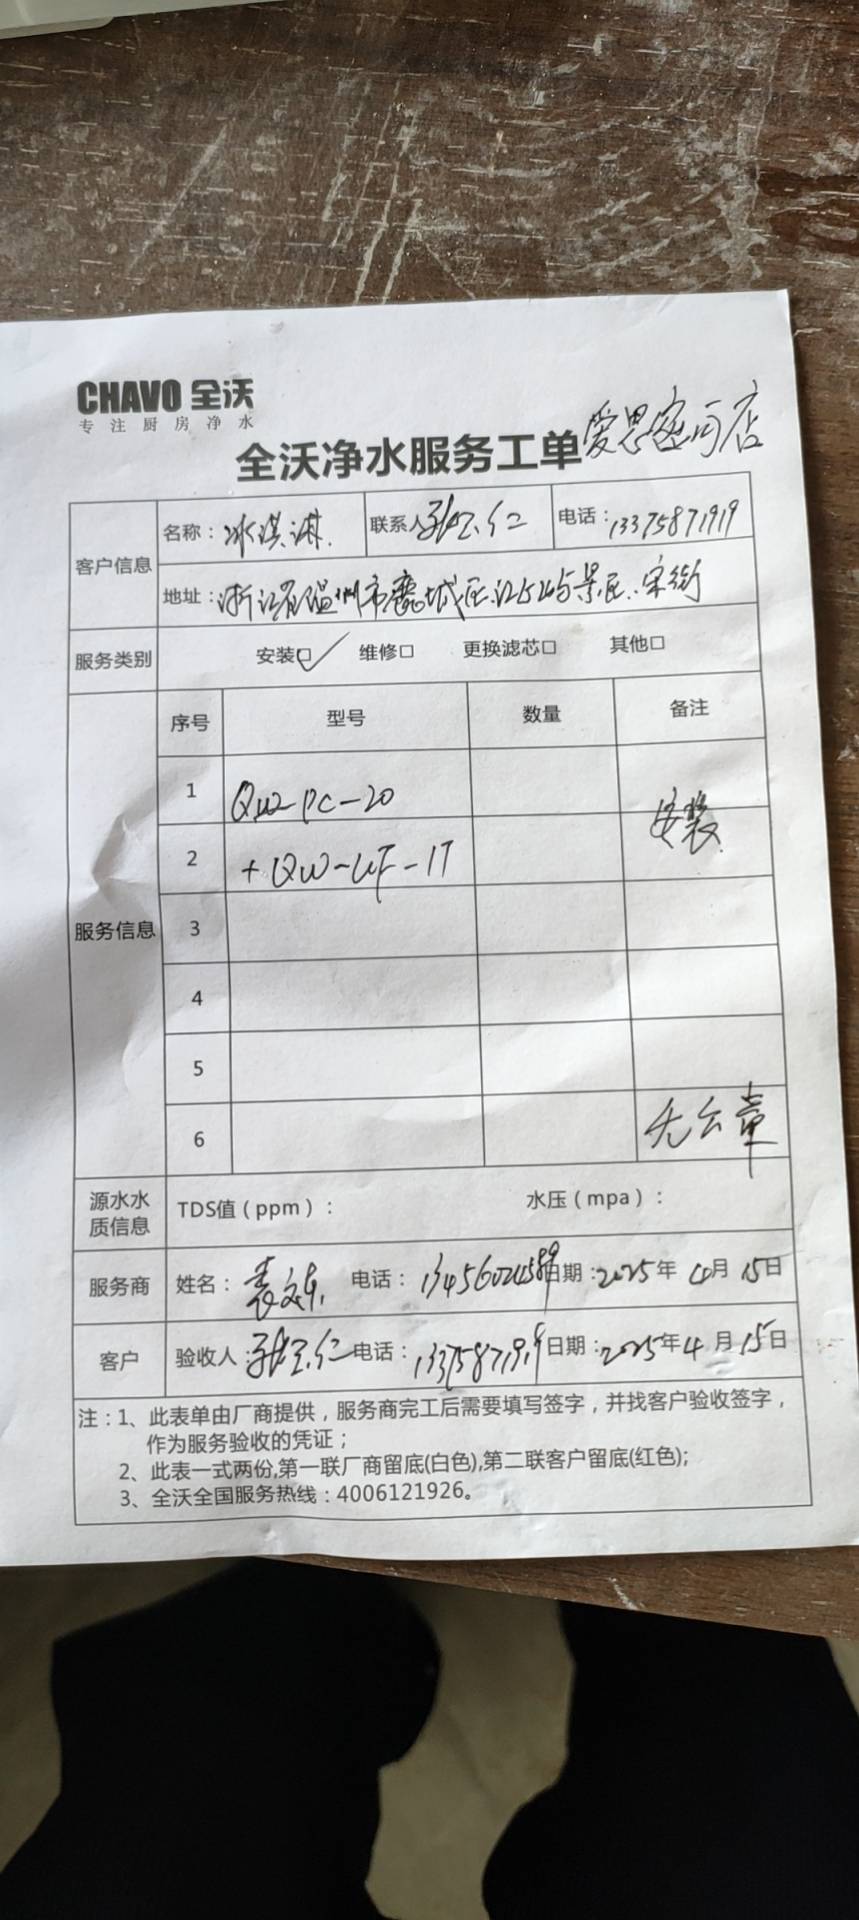 CHAVO 全沃
专注厨房净水
全沃净水服务工单 爱思蜜可店
客户信息 名称：冰淇淋 联系人 电话：13375871919
地址：浙江省温州市鹿城区江心屿景区 宋街
服务类别 安装□✓ 维修□ 更换滤芯□ 其他□
服务信息 序号 型号 数量 备注
1 QW-PC-20 安装
2 +QW-UF-1T
3
4
5
6 无公章
源水水质信息 TDS值（ppm）： 水压（mpa）：
服务商 姓名： 电话： 日期：2025年 4月 15日
客户 验收人： 电话：13375871919 日期：2025年 4月 15日
注：1、此表单由厂商提供，服务商完工后需要填写签字，并找客户验收签字，
作为服务验收的凭证；
2、此表一式两份,第一联厂商留底(白色),第二联客户留底(红色);
3、全沃全国服务热线：4006121926。